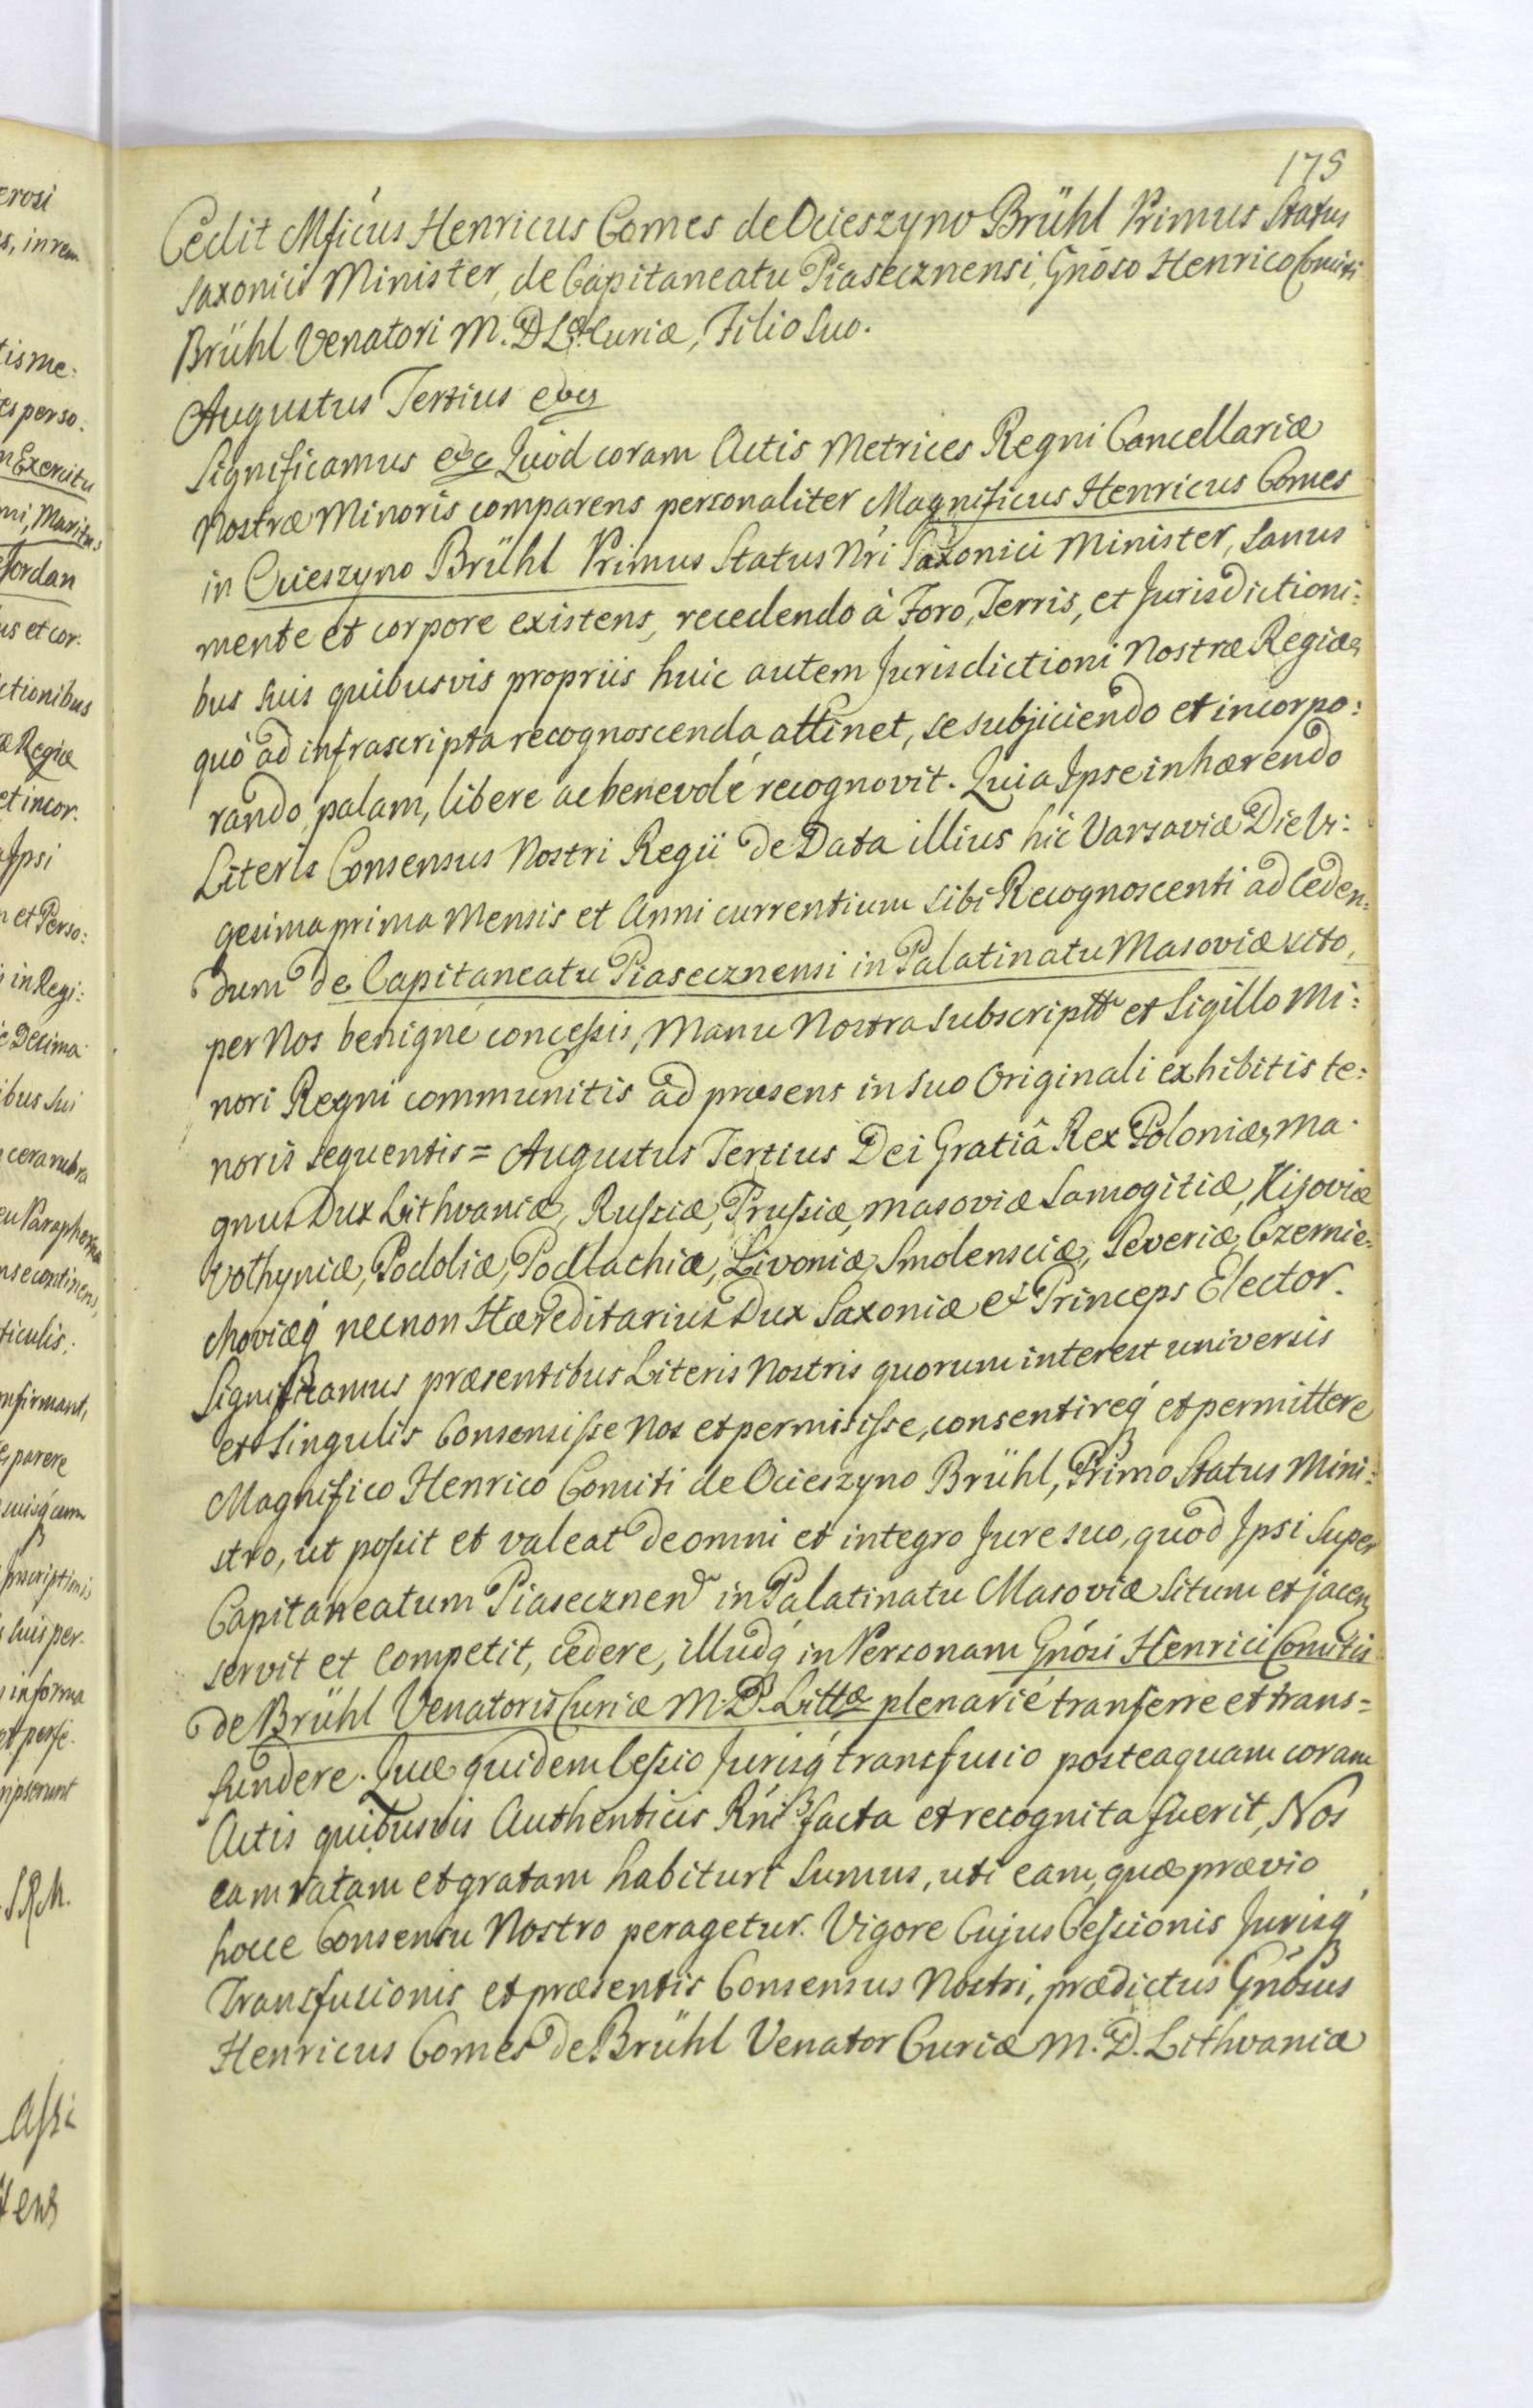 erosi
s, in rem
tisme:
es perso:
n Exercitu
ni, Maritus
Jordan
us et cor:
ctionibus
æ Regiæ
et incor:
Ipsi
n et Perso:
s in Regi:
e Decima
ibus Sui
cera rubra
nse continens,
ticulis.
nfirmant,
parere
Inscriptionis
suis per-
informa
et perfe-
ripserunt
SRM.
175
Cedit Mficus Henricus Comes de Ocieszyno Brühl Primus Status
Saxonici Minister, de Capitaneatu Piasecznensi, Gnõso Henrico Comiti
Brühl Venatori M. D. L. Curiæ, Filio Suo.
Augustus Tertius etc
Significamus etc Quod coram Actis Metrices Regni Cancellariæ
Nostræ Minoris comparens personaliter Magnificus Henricus Comes
in Ocieszyno Brühl Primus Status Nri Saxonici Minister, Sanus
mente et corpore existens, recedendo à Foro, Terris, et Jurisdictioni:
bus Suis quibusvis propriis huic autem Jurisdictioni Nostræ Regiæ,
quò ad infrascripta recognoscenda attinet, se subjiciendo et incorpo:
rando, palam, libere ac benevolé recognovit. Quia Ipse inhærendo
Literis Consensus Nostri Regii de Data illius hic Varsaviæ Die Vi:
gesima prima Mensis et Anni currentium Sibi Recognoscenti ad Ceden:
dum de Capitaneatu Piasecznensi in Palatinatu Masoviæ sito,
per Nos benigné concessis, Manu Nostra Subscriptt et Sigillo Mi:
nori Regni communitis ad præsens in Suo Originali exhibitis te:
noris sequentis = Augustus Tertius Dei Gratiâ Rex Poloniæ, Ma-
gnus Dux Lithvaniæ, Russiæ, Prussiæ, Masoviæ Samogitiæ, Kijoviæ
Volhyniæ, Podoliæ, Podlachiæ, Livoniæ, Smolensciæ, Severiæ, Czernie:
choviæq́ necnon Hæreditarius Dux Saxoniæ et Princeps Elector.
Significamus præsentibus Literis Nostris quorum interest universis
et Singulis Consensisse Nos et permisisse, consentireq́ et permittere
Magnifico Henrico Comiti de Ocieszyno Brühl, Primo Status Mini:
stro, ut possit et valeat de omni et integro Jure suo, quod Ipsi Super
Capitaneatum Piasecznen in Palatinatu Masoviæ Situm et jacen
servit et Competit, cedere, illudq́ in Personam Gnósi Henrici Comitis
de Brühl Venatoris Curiæ M. D. Littæ plenarié transferre et trans=
fundere. Quæ quidem Cessio Jurisq́ transfusio posteaquam coram
Actis quibusvis Authenticis Rni facta et recognita fuerit, Nos
eam ratam et gratam habituri Sumus, uti eam, quæ prævio
hocce Consensu Nostro peragetur. Vigore Cujus Cessionis Jurisq́
Transfusionis et præsentis Consensus Nostri, prædictus Gnósus
Henricus Comes de Brühl Venator Curiæ M. D. Lithvaniæ